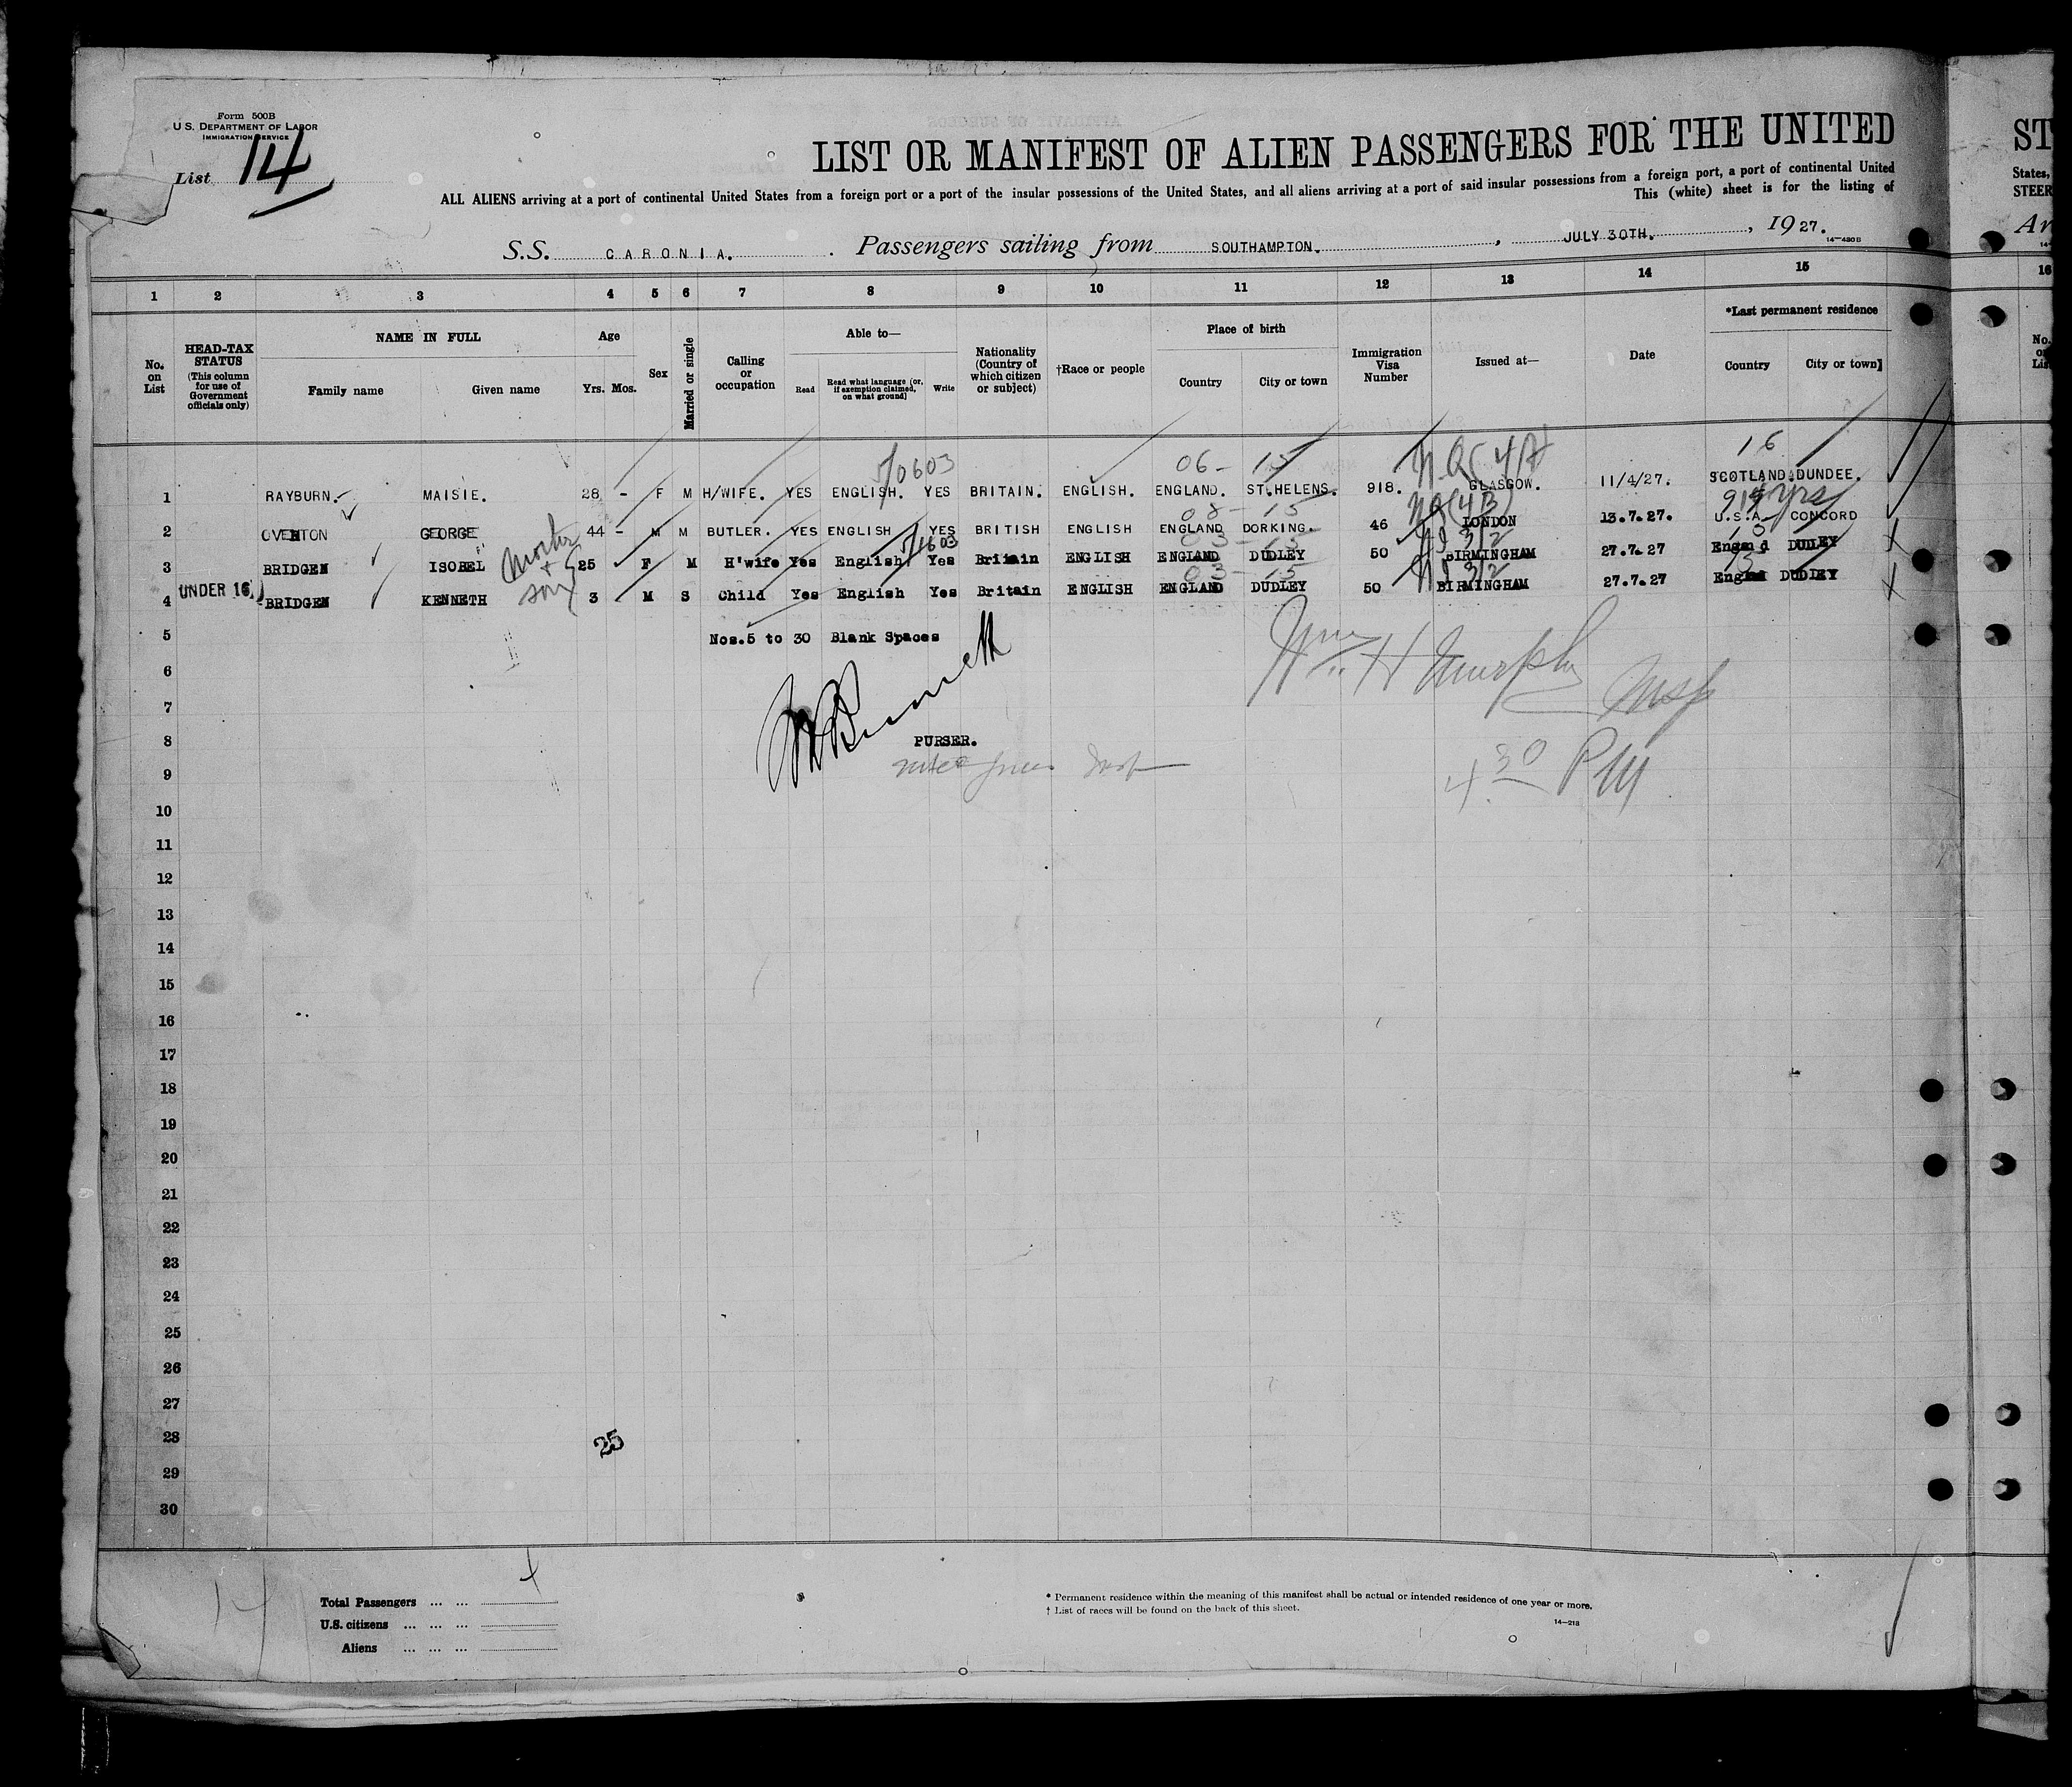 Form 500B
U. S. DEPARTMENT OF LABOR
IMMIGRATION SERVICE
List 14
LIST OR MANIFEST OF ALIEN PASSENGERS FOR THE UNITED
ST
ALL ALIENS arriving at a port of continental United States from a foreign port or a port of the insular possessions of the United States, and all aliens arriving at a port of said insular possessions from a foreign port, a port of continental United
States,
This (white) sheet is for the listing of
STEER
S.S. CARONIA. Passengers sailing from SOUTHAMPTON. , JULY 30TH. , 1927.
Ar
14—430B
1 2 3 4 5 6 7 8 9 10 11 12 13 14 15
16
No. on List
HEAD-TAX STATUS (This column for use of Government officials only)
NAME IN FULL
Family name Given name
Age
Yrs. Mos.
Sex
Married or single
Calling or occupation
Able to—
Read
Read what language (or, if exemption claimed, on what ground)
Write
Nationality (Country of which citizen or subject)
†Race or people
Place of birth
Country City or town
Immigration Visa Number
Issued at—
Date
*Last permanent residence
Country City or town
5/0603 06- 15 N.Q(4A) 16
1 RAYBURN. MAISIE. 28 - F M H/WIFE. YES ENGLISH. YES BRITAIN. ENGLISH. ENGLAND. ST.HELENS. 918. GLASGOW. 11/4/27. SCOTLAND. DUNDEE.
08- 15 NQ(4B) yrs
2 OVERTON GEORGE 44 - M M BUTLER. YES ENGLISH YES BRITISH ENGLISH ENGLAND DORKING. 46 LONDON 13.7.27. U.S.A. CONCORD
03- 15 3/2
3 BRIDGEN ISOBEL 25 F M H'wife Yes English Yes Britain ENGLISH ENGLAND DUDLEY 50 BIRMINGHAM 27.7.27 Engand DUDLEY
Mother + son
03- 15 3/2
UNDER 16
4 BRIDGEN KENNETH 3 M S Child Yes English Yes Britain ENGLISH ENGLAND DUDLEY 50 BIRMINGHAM 27.7.27 England DUDLEY
5 Nos.5 to 30 Blank Spaces
6
Wm H Murphy
Insp
7
8 PURSER.
4 30 PM
9
10
11
12
13
14
15
16
17
18
19
20
21
22
23
24
25
26
27
28
25
29
30
14
Total Passengers ... ... 4
U.S. citizens ... ... ...
Aliens ... ... ...
* Permanent residence within the meaning of this manifest shall be actual or intended residence of one year or more.
† List of races will be found on the back of this sheet.
14—218